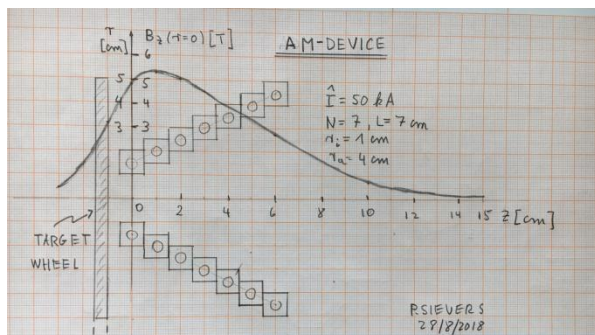 r
[cm]
B_z(r=0) [T]
AM-DEVICE
6
5 5
4 4
3 3
Î = 50 kA
N = 7, L = 7 cm
r_i = 1 cm
r_a = 4 cm
0 2 4 6 8 10 12 14 15 Z [cm]
TARGET
WHEEL
P.SIEVERS
29/8/2018